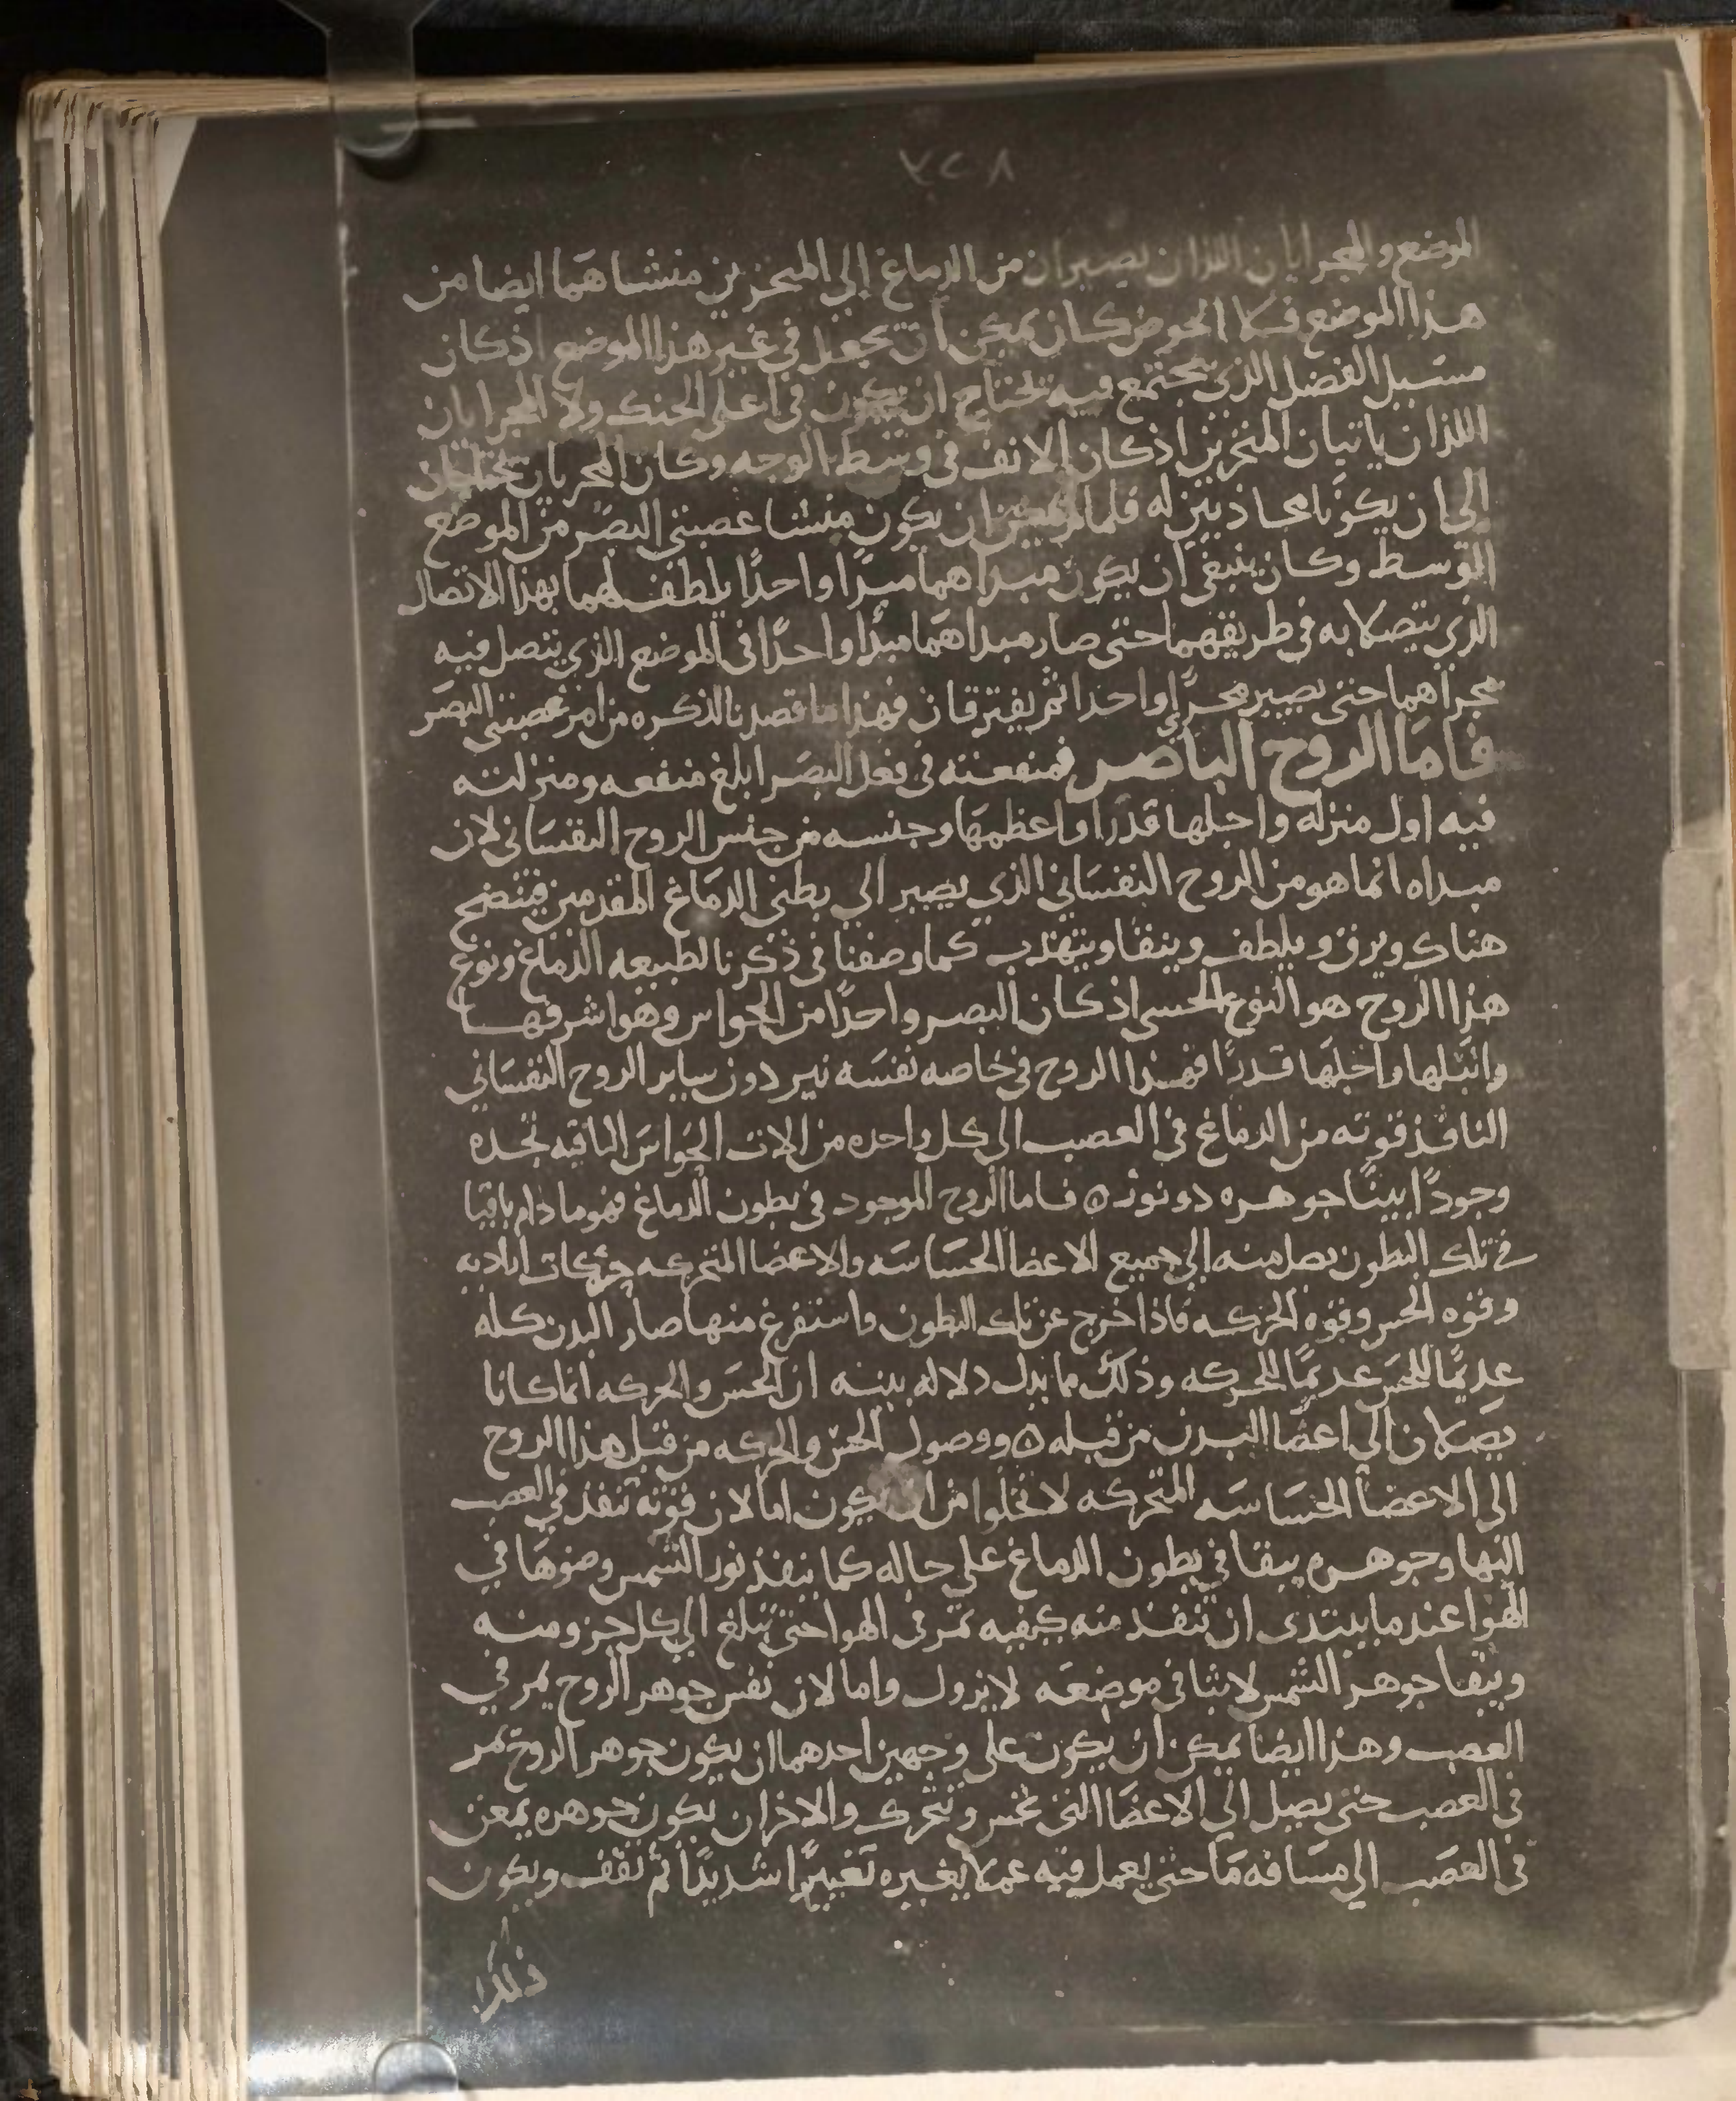 ٧٢٨
الموضع والمجرايان اللذان يصيران من الدماغ إلى المنخرين منشاهما ايضا من
هذا الموضع فلا الحوض كان يمكن ان يجعل في غير هذا الموضع اذ كان
مسيل الفضل الذي يجتمع فيه يحتاج ان يكون في اعلى الحنك ولا المجرايان
اللذان ياتيان المنخرين اذ كان الانف في وسط الوجه وكان المجريان يحتاجان
الى ان يكونا محاذيين له فلما لم يمكن ان يكون منشا عصبتي البصر من الموضع
المتوسط وكان ينبغي ان يكون مبداهما مبدًا واحدًا يلطف لهما بهذا الاتصال
الذي يتصلا به في طريقهما حتى صار مبداهما مبدًا واحدًا في الموضع الذي يتصل فيه
مجراهما حتى يصير مجرًا واحدا ثم يفترقان فهذا ما قصدنا لذكره من امر عصبتي البصر
فاما الروح الباصر فمنفعته في فعل البصر ابلغ منفعه ومنزلته
فيه اول منزله واجلها قدرا واعظمها وجنسه من جنس الروح النفساني لان
مبداه انما هو من الروح النفساني الذي يصير الي بطني الدماغ المقدمين فينضج
هناك ويرق ويلطف وينقا ويتهذب كما وصفنا في ذكرنا لطبيعه الدماغ ونوع
هذا الروح هو النوع الحسي اذ كان البصر واحدًا من الحواس وهو اشرفها
وانبلها واجلها قدرًا فهذا الروح في خاصه نفسه نير دون ساير الروح النفساني
النافذ قوته من الدماغ في العصب الى كل واحده من الات الحواس الباقيه تجده
وجودًا بينًا جوهره ذو نور ٥ فاما الروح الموجود في بطون الدماغ فهو ما دام باقيا
في تلك البطون يصل منه الي جميع الاعضا الحساسه والاعضا المتحركه حركات اراديه
وقوه الحس وقوه الحركه فاذا خرج عن تلك البطون واستفرغ منها صار البدن كله
عديمًا للحس عديمًا للحركه وذلك ما يدل دلاله بينه ان الحس والحركه انما كانا
يصلان الي اعضا البدن من قبله ٥ ووصول الحس والحركه من قبل هذا الروح
الى الاعضا الحساسه المتحركه لا تخلوا من ان يكون اما لان قوته تنفذ في العصب
اليها وجوهره يبقا في بطون الدماغ على حاله كما ينفذ نور الشمس وضوها في
الهوا عندما يبتدى ان تنفذ منه كيفيه تمر في الهوا حتى تبلغ الى كل جزو منه
ويبقا جوهر الشمس لابثا في موضعه لا يزول واما لان نفس جوهر الروح يمر في
العصب وهذا ايضا يمكن ان يكون على وجهين احدهما ان يكون جوهر الروح يمر
في العصب حتى يصل الى الاعضا التي تحس وتتحرك والاخر ان يكون جوهره يمعن
في العصب الي مسافه ما حتى يعمل فيه عملا يغيره تغييرًا شديدًا ثم يقف ويكون
ذلك